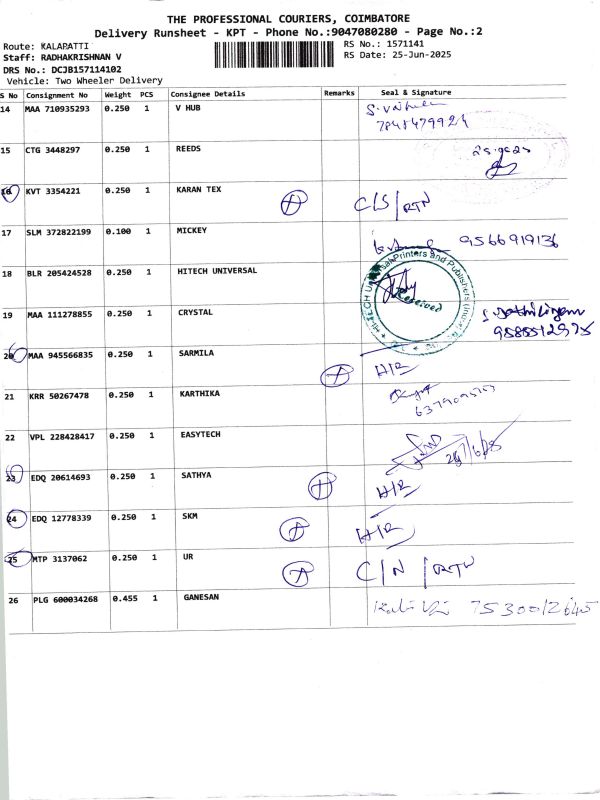 THE PROFESSIONAL COURIERS, COIMBATORE
Delivery Runsheet - KPT - Phone No.:9047080280 - Page No.:2
Route: KALAPATTI
Staff: RADHAKRISHNAN V
DRS No.: DCJB157114102
Vehicle: Two Wheeler Delivery
RS No.: 1571141
RS Date: 25-Jun-2025
S No Consignment No Weight PCS Consignee Details Remarks Seal & Signature
14 MAA 710935293 0.250 1 V HUB
15 CTG 3448297 0.250 1 REEDS
16 KVT 3354221 0.250 1 KARAN TEX C/S/RTN
17 SLM 372822199 0.100 1 MICKEY 9566919136
18 BLR 205424528 0.250 1 HITECH UNIVERSAL Received
19 MAA 111278855 0.250 1 CRYSTAL
20 MAA 945566835 0.250 1 SARMILA H/R
21 KRR 50267478 0.250 1 KARTHIKA
22 VPL 228428417 0.250 1 EASYTECH
23 EDQ 20614693 0.250 1 SATHYA H/R
24 EDQ 12778339 0.250 1 SKM H/R
25 MTP 3137062 0.250 1 UR C/N/RTN
26 PLG 600034268 0.455 1 GANESAN 7530012645